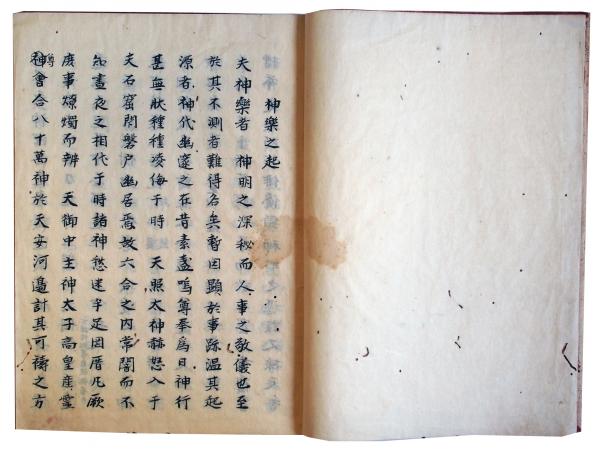 神樂之起
夫神樂者 神明之深秘而人事之敬儀也至
於其不測者難得名矣暫因顯於事跡温其起
源者神代幽邃之在昔素盞嗚尊奉爲日神行
甚無狀種種凌侮于時 天照太神赫怒入于
天石窟閇磐戸幽居焉故六合之内常闇而不
知晝夜之相代于時諸神愁迷手足罔厝凡厥
庶事燎燭而辨 天御中主神太子高皇產靈
尊
神會合八十萬神於天安河邊計其可禱之方